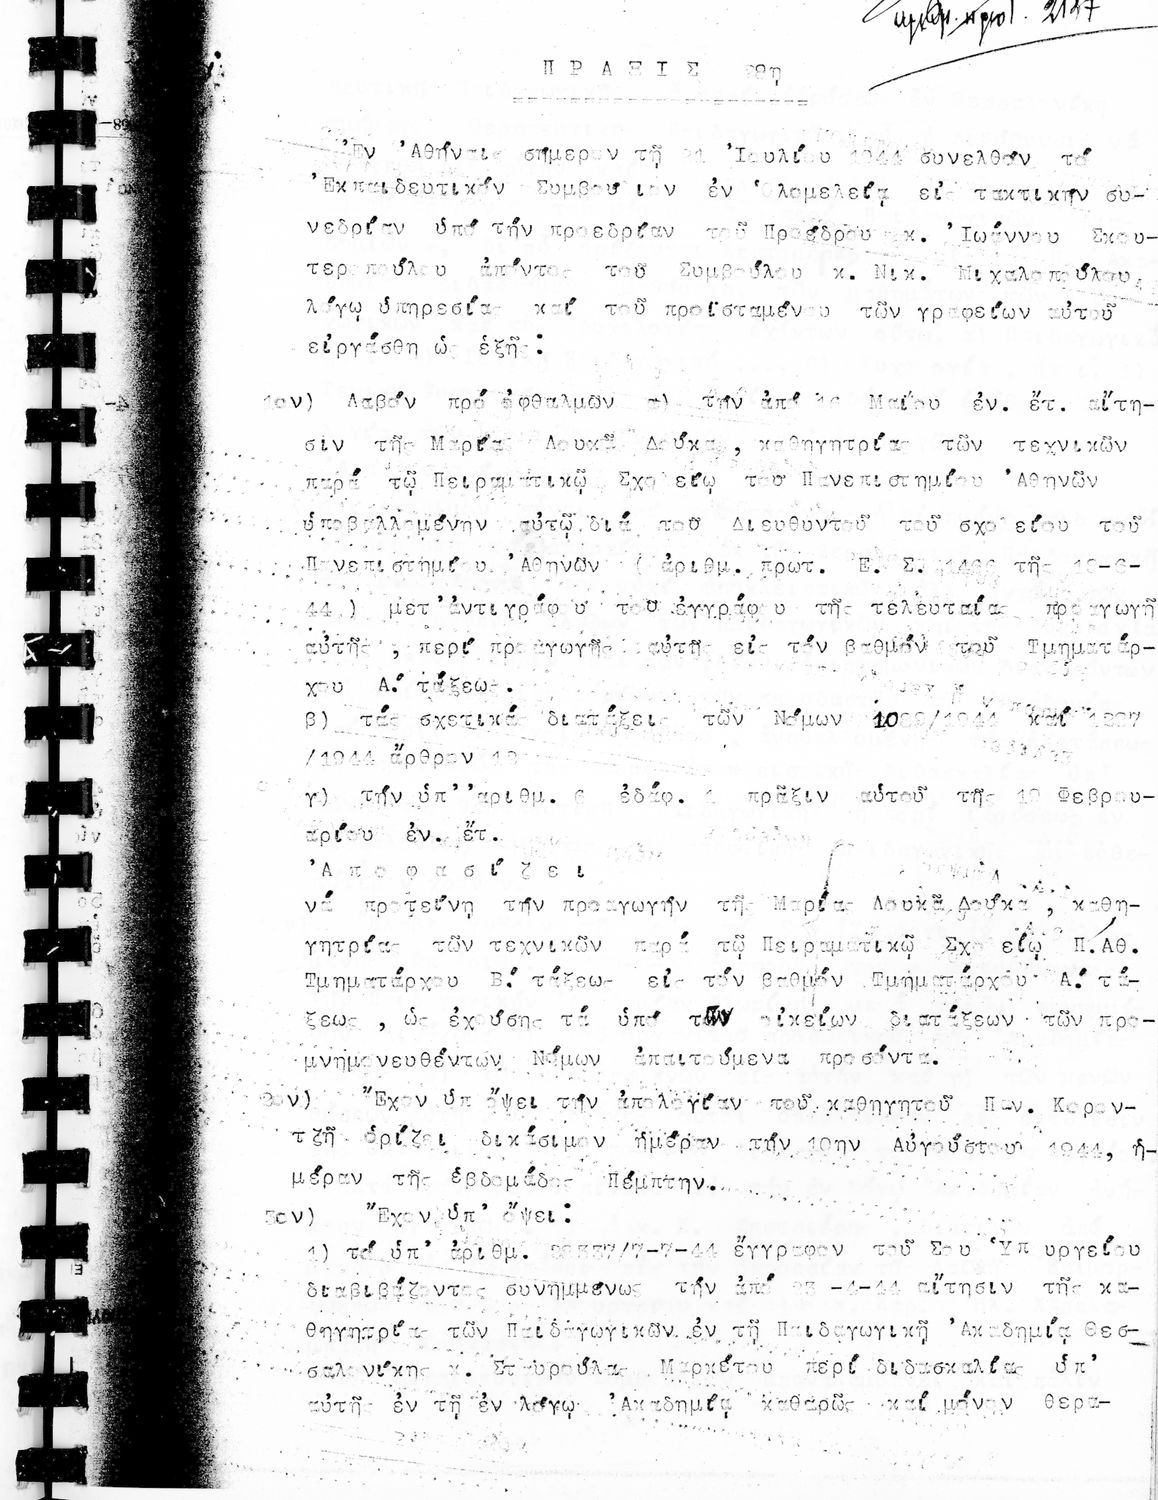 αριθμ. πρωτ. 2127
ΠΡΑΞΙΣ
Ἐν Ἀθήναις σήμερον τῇ 21 Ἰουλίου 1944 συνελθόν τό
Ἐκπαιδευτικόν Συμβούλιον ἐν Ὁλομελείᾳ εἰς τακτικήν συ-
νεδρίαν ὑπό τήν προεδρίαν τοῦ Προέδρου κ. Ἰωάννου Σκου-
τεροπούλου ἀπόντος τοῦ Συμβούλου κ. Νικ. Μιχαλοπούλου,
λόγῳ ὑπηρεσίας καί τοῦ προϊσταμένου τῶν γραφείων αὐτοῦ
εἰργάσθη ὡς ἑξῆς:
1ον) Λαβόν πρό ὀφθαλμῶν α) τήν ἀπό Μαΐου ἐν. ἔτ. αἴτη-
σιν τῆς Μαρίας Λουκᾶ Δούκα, καθηγητρίας τῶν τεχνικῶν
παρά τῷ Πειραματικῷ Σχολείῳ τοῦ Πανεπιστημίου Ἀθηνῶν
ὑποβαλλομένην αὐτῷ διά τοῦ Διευθυντοῦ τοῦ σχολείου τοῦ
Πανεπιστημίου Ἀθηνῶν ( ἀριθμ. πρωτ. Ε. Σ. τῆς
44 ) μετ' ἀντιγράφου τοῦ ἐγγράφου τῆς τελευταίας προαγωγῆ
αὐτῆς , περί προαγωγῆς αὐτῆς εἰς τόν βαθμόν τοῦ Τμηματάρ-
χου Α.' τάξεως.
β) τάς σχετικάς διατάξεις τῶν Νόμων /1944 καί
/1944 ἄρθρον
γ) τήν ὑπ' ἀριθμ. 6 ἐδάφ. 1 πρᾶξιν αὐτοῦ τῆς Φεβρου-
αρίου ἐν. ἔτ.
Ἀ π ο φ α σ ί ζ ε ι
νά προτείνῃ τήν προαγωγήν τῆς Μαρίας Λουκᾶ Δούκα , καθη-
γητρίας τῶν τεχνικῶν παρά τῷ Πειραματικῷ Σχολείῳ Π. Ἀθ.
Τμηματάρχου Β.' τάξεως εἰς τόν βαθμόν Τμηματάρχου Α.' τά-
ξεως , ὡς ἐχούσης τά ὑπό τῶν οἰκείων διατάξεων τῶν προ-
μνημονευθέντων Νόμων ἀπαιτούμενα προσόντα.
2ον) Ἔχον ὑπ ὄψει τήν ἀπολογίαν τοῦ καθηγητοῦ Παν. Κορον-
τζῆ ὁρίζει δικάσιμον ἡμέραν τήν 10ην Αὐγούστου 1944, ἡ-
μέραν τῆς ἑβδομάδος Πέμπτην.
3ον) Ἔχον ὑπ' ὄψει:
1) τό ὑπ' ἀριθμ. /7-7-44 ἔγγραφον τοῦ Σου Ὑπουργείου
διαβιβάζοντος συνημμένως τήν ἀπό -4-44 αἴτησιν τῆς κα-
θηγητρίας τῶν Παιδαγωγικῶν ἐν τῇ Παιδαγωγικῇ Ἀκαδημίᾳ Θεσ-
σαλονίκης κ. Σταυρούλας Μαρκέτου περί διδασκαλίας ὑπ'
αὐτῆς ἐν τῇ ἐν λόγῳ Ἀκαδημίᾳ καθαρῶς καί μόνον θερα-